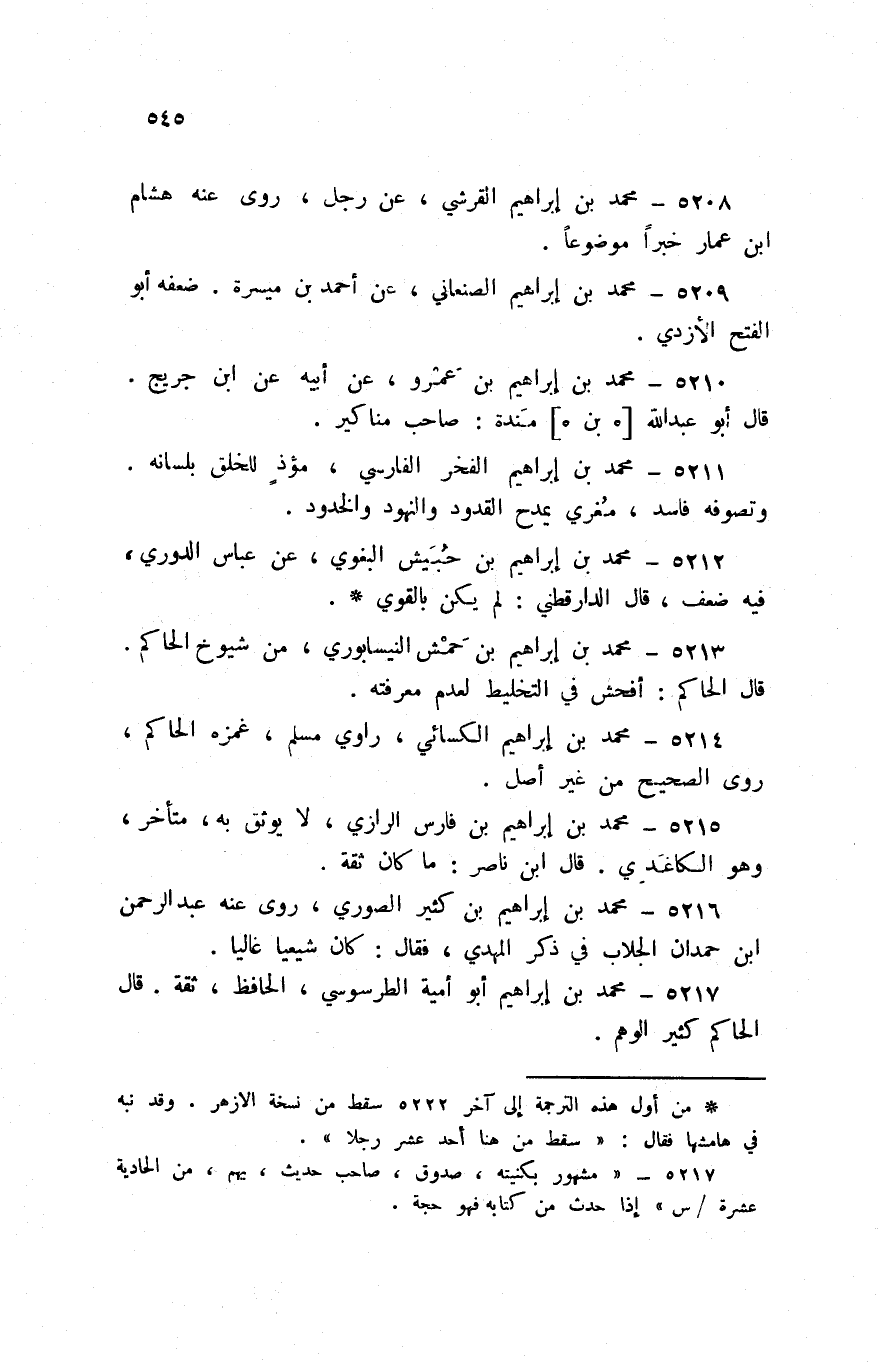 ٥٤٥
٥٢٠٨ – محمد بن إبراهيم القرشي ، عن رجل ، روى عنه هشام
ابن عمار خبراً موضوعاً .
٥٢٠٩ – محمد بن إبراهيم الصنعاني ، عن أحمد بن ميسرة . ضعفه أبو
الفتح الأزدي .
٥٢١٠ – محمد بن إبراهيم بن عَمْرو ، عن أبيه عن ابن جريج .
قال أبو عبدالله [ه بن ه] مَندة : صاحب مناكير .
٥٢١١ – محمد بن إبراهيم الفخر الفارسي ، مؤذٍ للخلق بلسانه .
وتصوفه فاسد ، مُغري بمدح القدود والنهود والخدود .
٥٢١٢ – محمد بن إبراهيم بن حُبَيش البغوي ، عن عباس الدوري ،
فيه ضعف ، قال الدارقطني : لم يكن بالقوي * .
٥٢١٣ – محمد بن إبراهيم بن حَمْش النيسابوري ، من شيوخ الحاكم .
قال الحاكم : أفحش في التخليط لعدم معرفته .
٥٢١٤ – محمد بن إبراهيم الكسائي ، راوي مسلم ، غمزه الحاكم ،
روى الصحيح من غير أصل .
٥٢١٥ – محمد بن إبراهيم بن فارس الرازي ، لا يوثق به ، متأخر ،
وهو الكاغَدِي . قال ابن ناصر : ما كان ثقة .
٥٢١٦ – محمد بن إبراهيم بن كثير الصوري ، روى عنه عبدالرحمن
ابن حمدان الجلاب في ذكر المهدي ، فقال : كان شيعيا غاليا .
٥٢١٧ – محمد بن إبراهيم أبو أمية الطرسوسي ، الحافظ ، ثقة . قال
الحاكم كثير الوهم .
* من أول هذه الترجمة إلى آخر ٥٢٢٢ سقط من نسخة الازهر . وقد نبه
في هامشها فقال : « سقط من هنا أحد عشر رجلا » .
٥٢١٧ – « مشهور بكنيته ، صدوق ، صاحب حديث ، يهم ، من الحادية
عشرة / س » إذا حدث من كتابه فهو حجة .